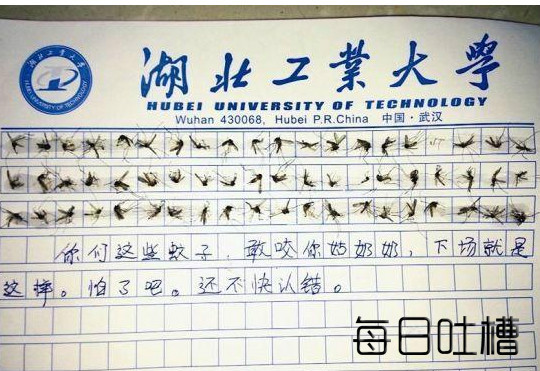 湖北工業大學
HUBEI UNIVERSITY OF TECHNOLOGY
Wuhan 430068, Hubei P.R.China 中国·武汉
你们这些蚊子,敢咬你姑奶奶,下场就是
这样。怕了吧。还不快认错。
每日吐槽